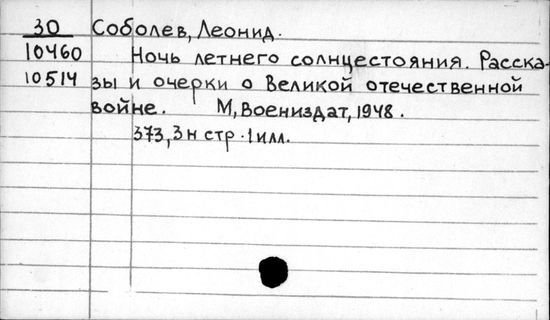 30 Соболев, Леонид.
10460 Ночь летнего солнцестояния. Расска-
10514 зы и очерки о Великой отечественной
войне. М, Воениздат, 1948.
373, 3н стр. 1илл.